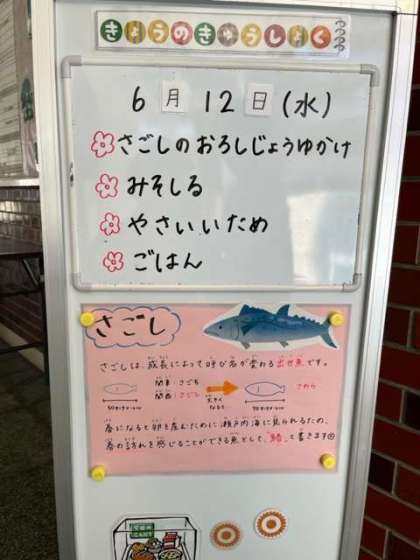 きょうのきゅうしょく
6月12日(水)
さごしのおろしじょうゆかけ
みそしる
やさいいため
ごはん
さごし
さごしは、成長によって呼び名が変わる出世魚です。
関東:さごち
関西:さごし
大きくなると
さわら
春になると卵を産むために瀬戸内海に見られるため、
春の訪れを感じることができる魚として、「鰆」と書きます